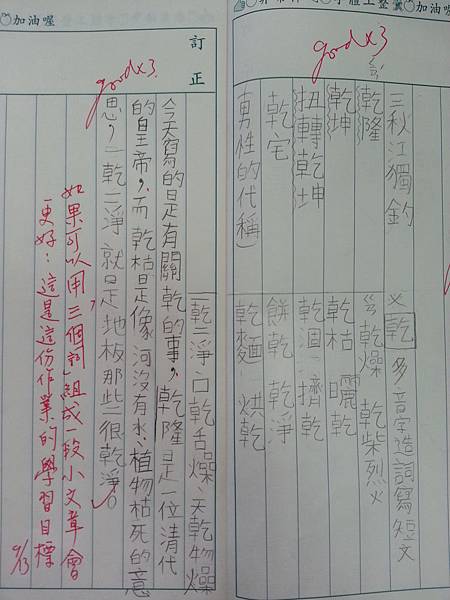 加油喔
字體工整
加油喔
good x3
三秋江獨釣
乾隆
乾坤
扭轉乾坤
乾宅
男性的代稱
乂乾多音字造詞寫短文
乾燥 乾柴烈火
乾枯 曬乾
乾涸 擠乾
餅乾 乾淨
乾麵 烘乾
訂正
good x3
一乾二淨、口乾舌燥、天乾物燥
今天寫的是有關乾的事，乾隆是一位清代
的皇帝，而乾枯是像河沒有水、植物枯死的意
思，一乾二淨就是地板那些很乾淨。
如果可以用「三個詞」組成一段小文章會
更好：這是這份作業的學習目標
9/13